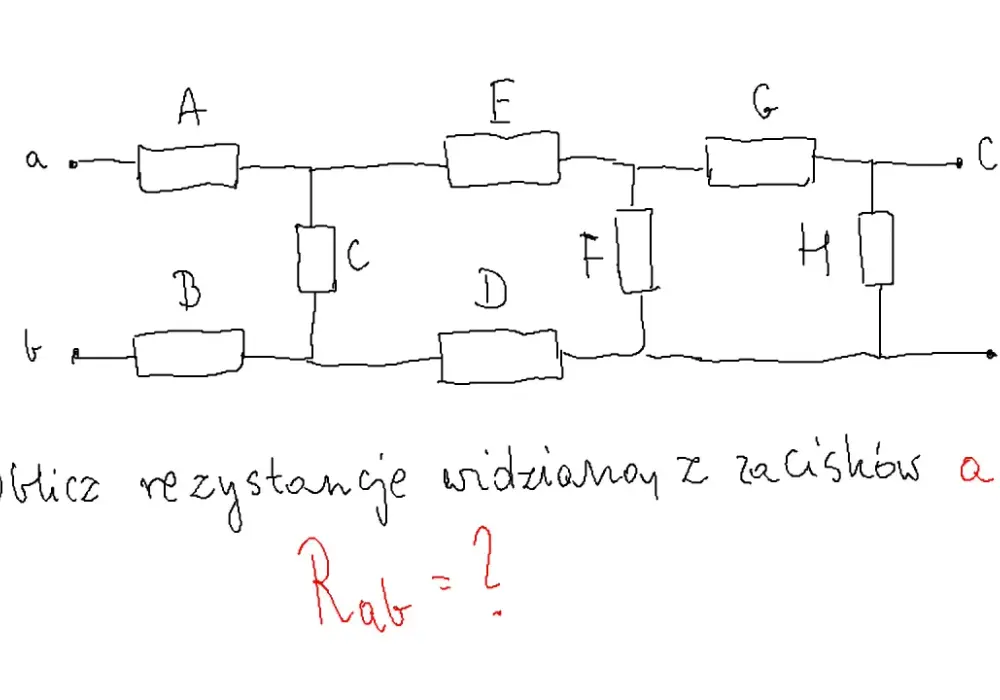 A E G
a C
C F H
B D
b
oblicz rezystancje widzianą z zacisków a
Rab = ?